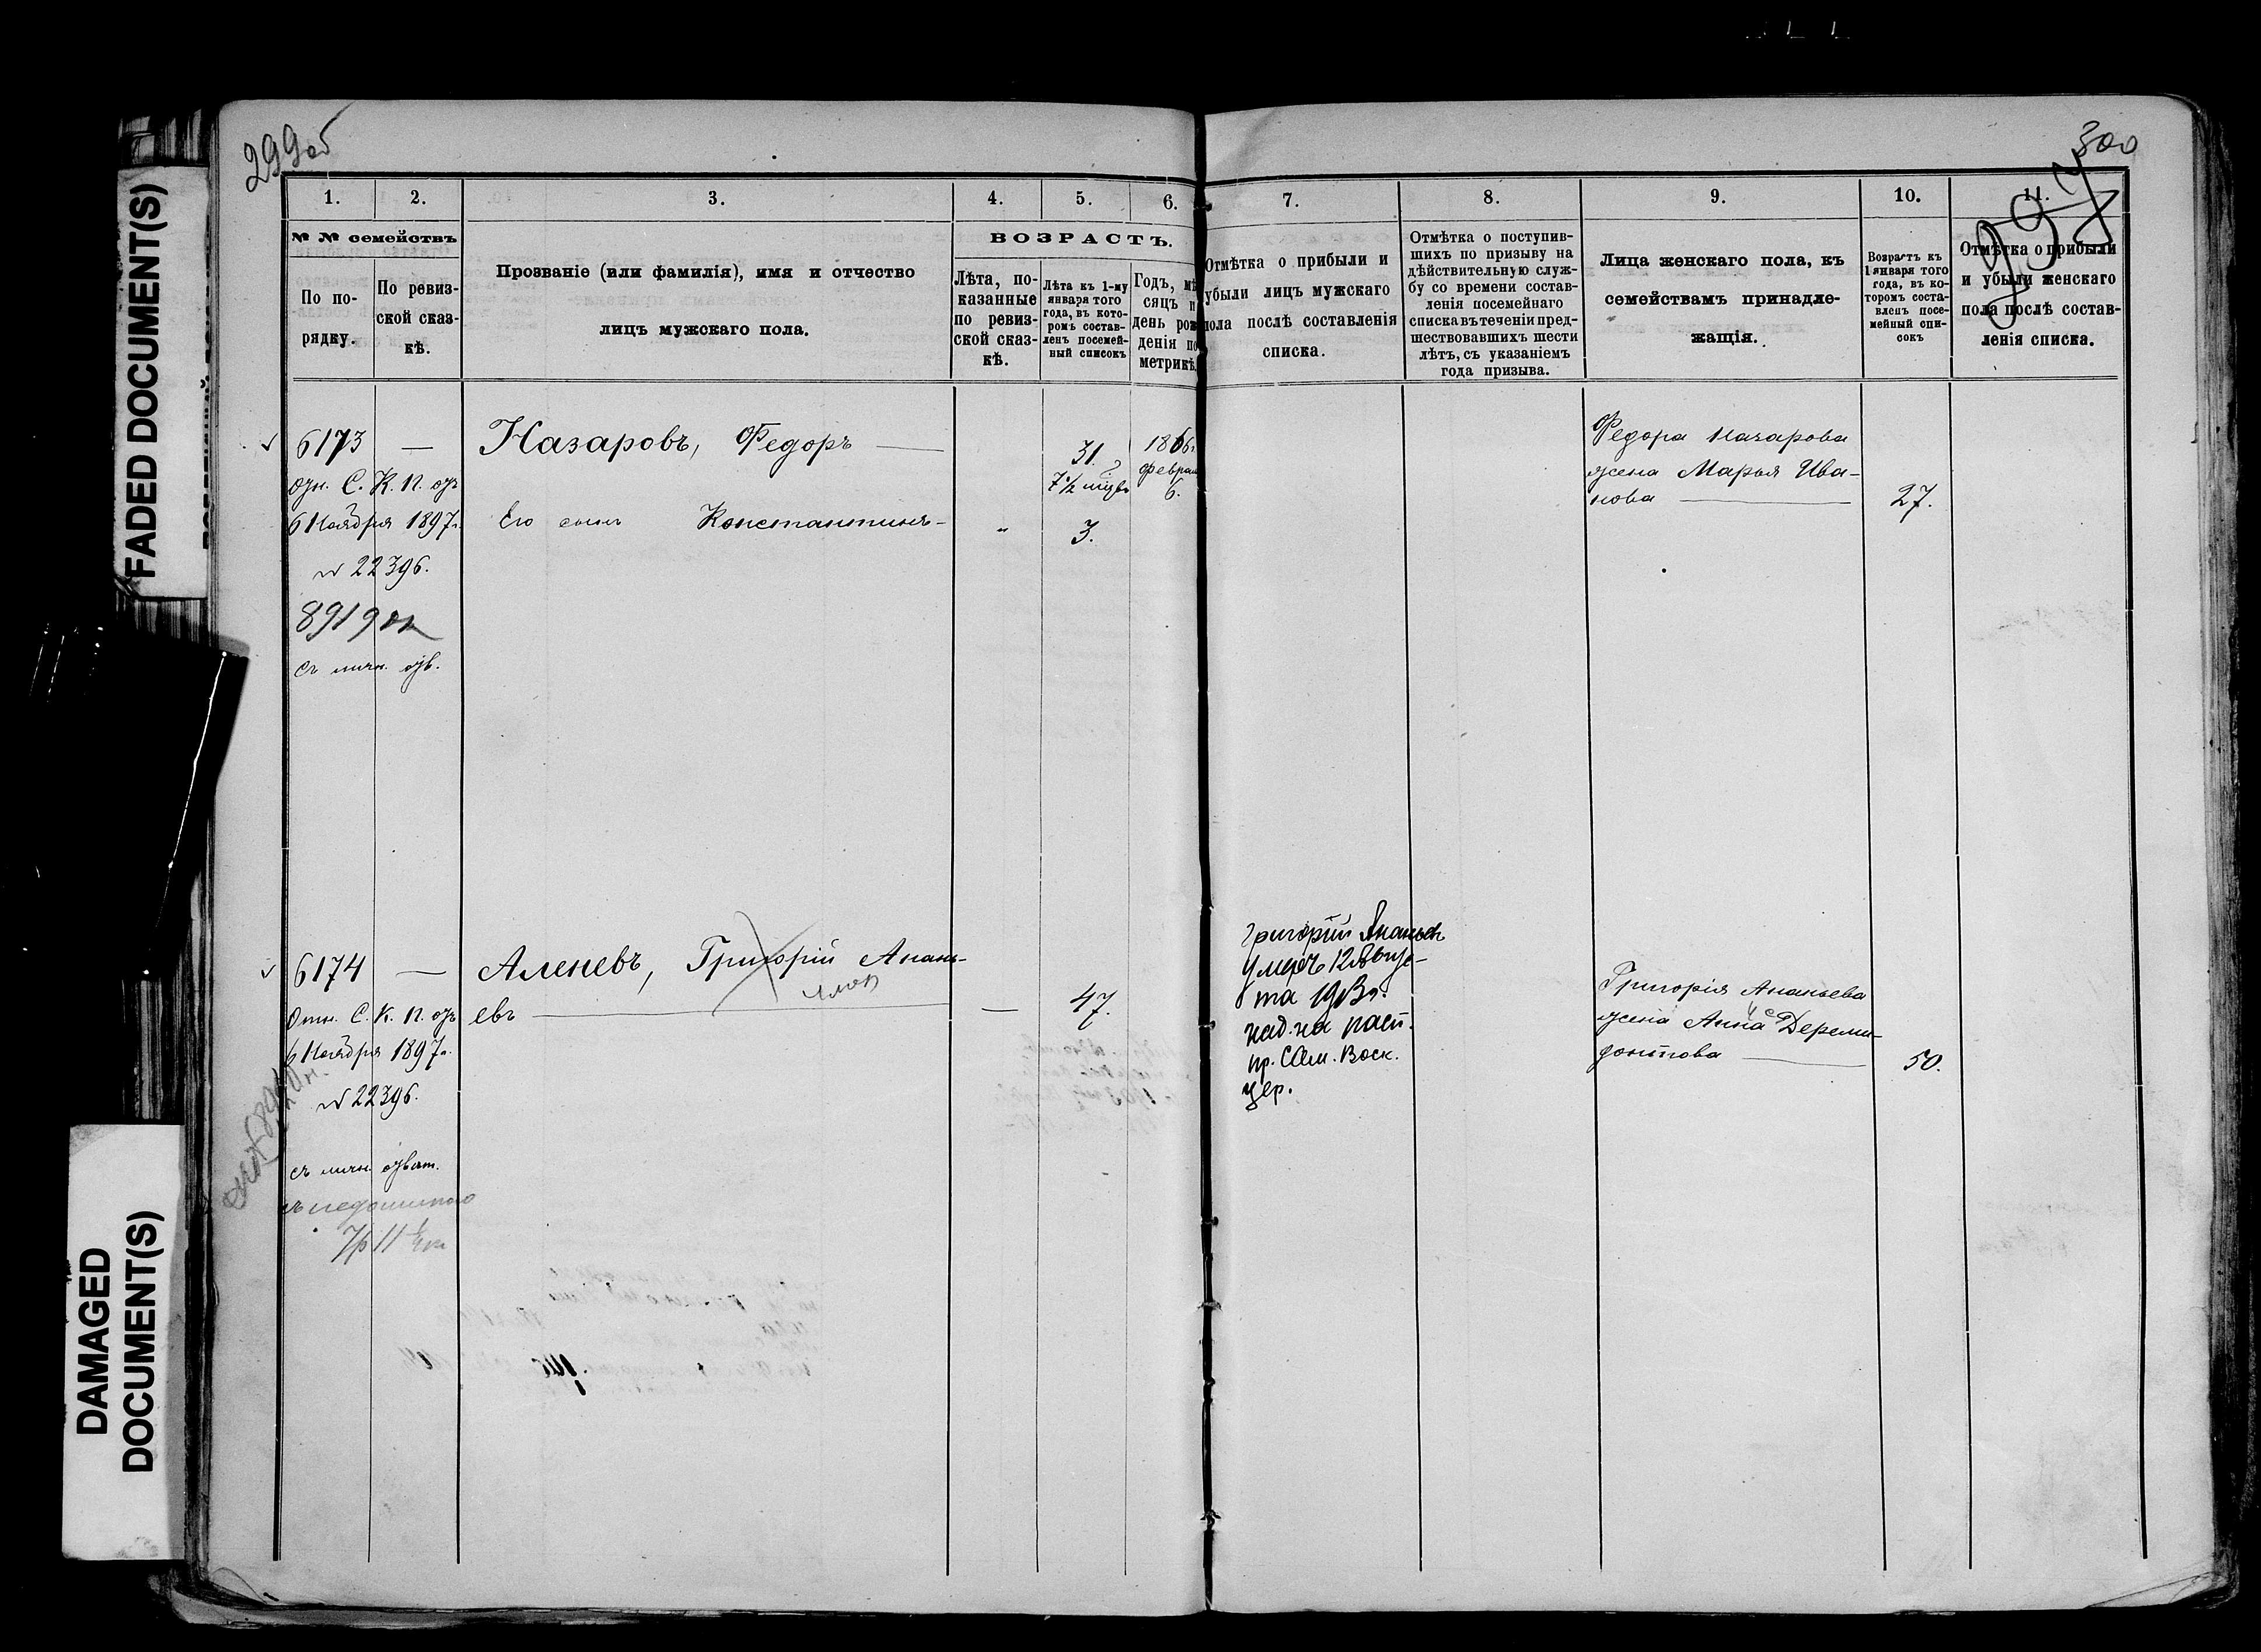 299об
300
FADED DOCUMENT(S)
DAMAGED
DOCUMENT(S)
1.
2.
3.
4.
5.
6.
7.
8.
9.
10.
11.
№ № семействъ
По по-
рядку.
По ревиз-
ской сказ-
кѣ.
Прозваніе (или фамилія), имя и отчество
лицъ мужскаго пола.
ВОЗРАСТЪ.
Лѣта, по-
казанные
по ревиз-
ской сказ-
кѣ.
Лѣта къ 1-му
января того
года, въ кото-
ромъ состав-
ленъ посемей-
ный списокъ
Годъ, мѣ
сяцъ и
день рож
денія по
метрикѣ.
Отмѣтка о прибыли и
убыли лицъ мужскаго
пола послѣ составленія
списка.
Отмѣтка о поступив-
шихъ по призыву на
дѣйствительную служ-
бу со времени состав-
ленія посемейнаго
списка въ теченіи пред-
шествовавшихъ шести
лѣтъ, съ указаніемъ
года призыва.
Лица женскаго пола, къ
семействамъ принадле-
жащія.
Возрастъ къ
1 января того
года, въ ко-
торомъ соста-
вленъ посе-
мейный спи-
сокъ
Отмѣтка о прибыли
и убыли женскаго
пола послѣ состав-
ленія списка.
6173 —
С. К. П.
6 Ноября 1897г.
№ 22396.
8919
съ личн.
Назаровъ, Федоръ
31.
7½ мцв
1866г
Феврал
6.
Его сынъ Константинъ-
„ 3.
Федора Назарова
жена Марья Ива-
нова
27.
6174 —
Отн. С. К. П.
6 Ноября 1897г.
№ 22396.
съ личн.
съ недоимкою
Аленевъ, Григорій Анань-
евъ
— 47.
Григорій Ананьевъ
умеръ 12 Авгус-
та 1913г.
над. на
пр. Воск.
цер.
Григорія Ананьева
жена Анна
донтова
50.